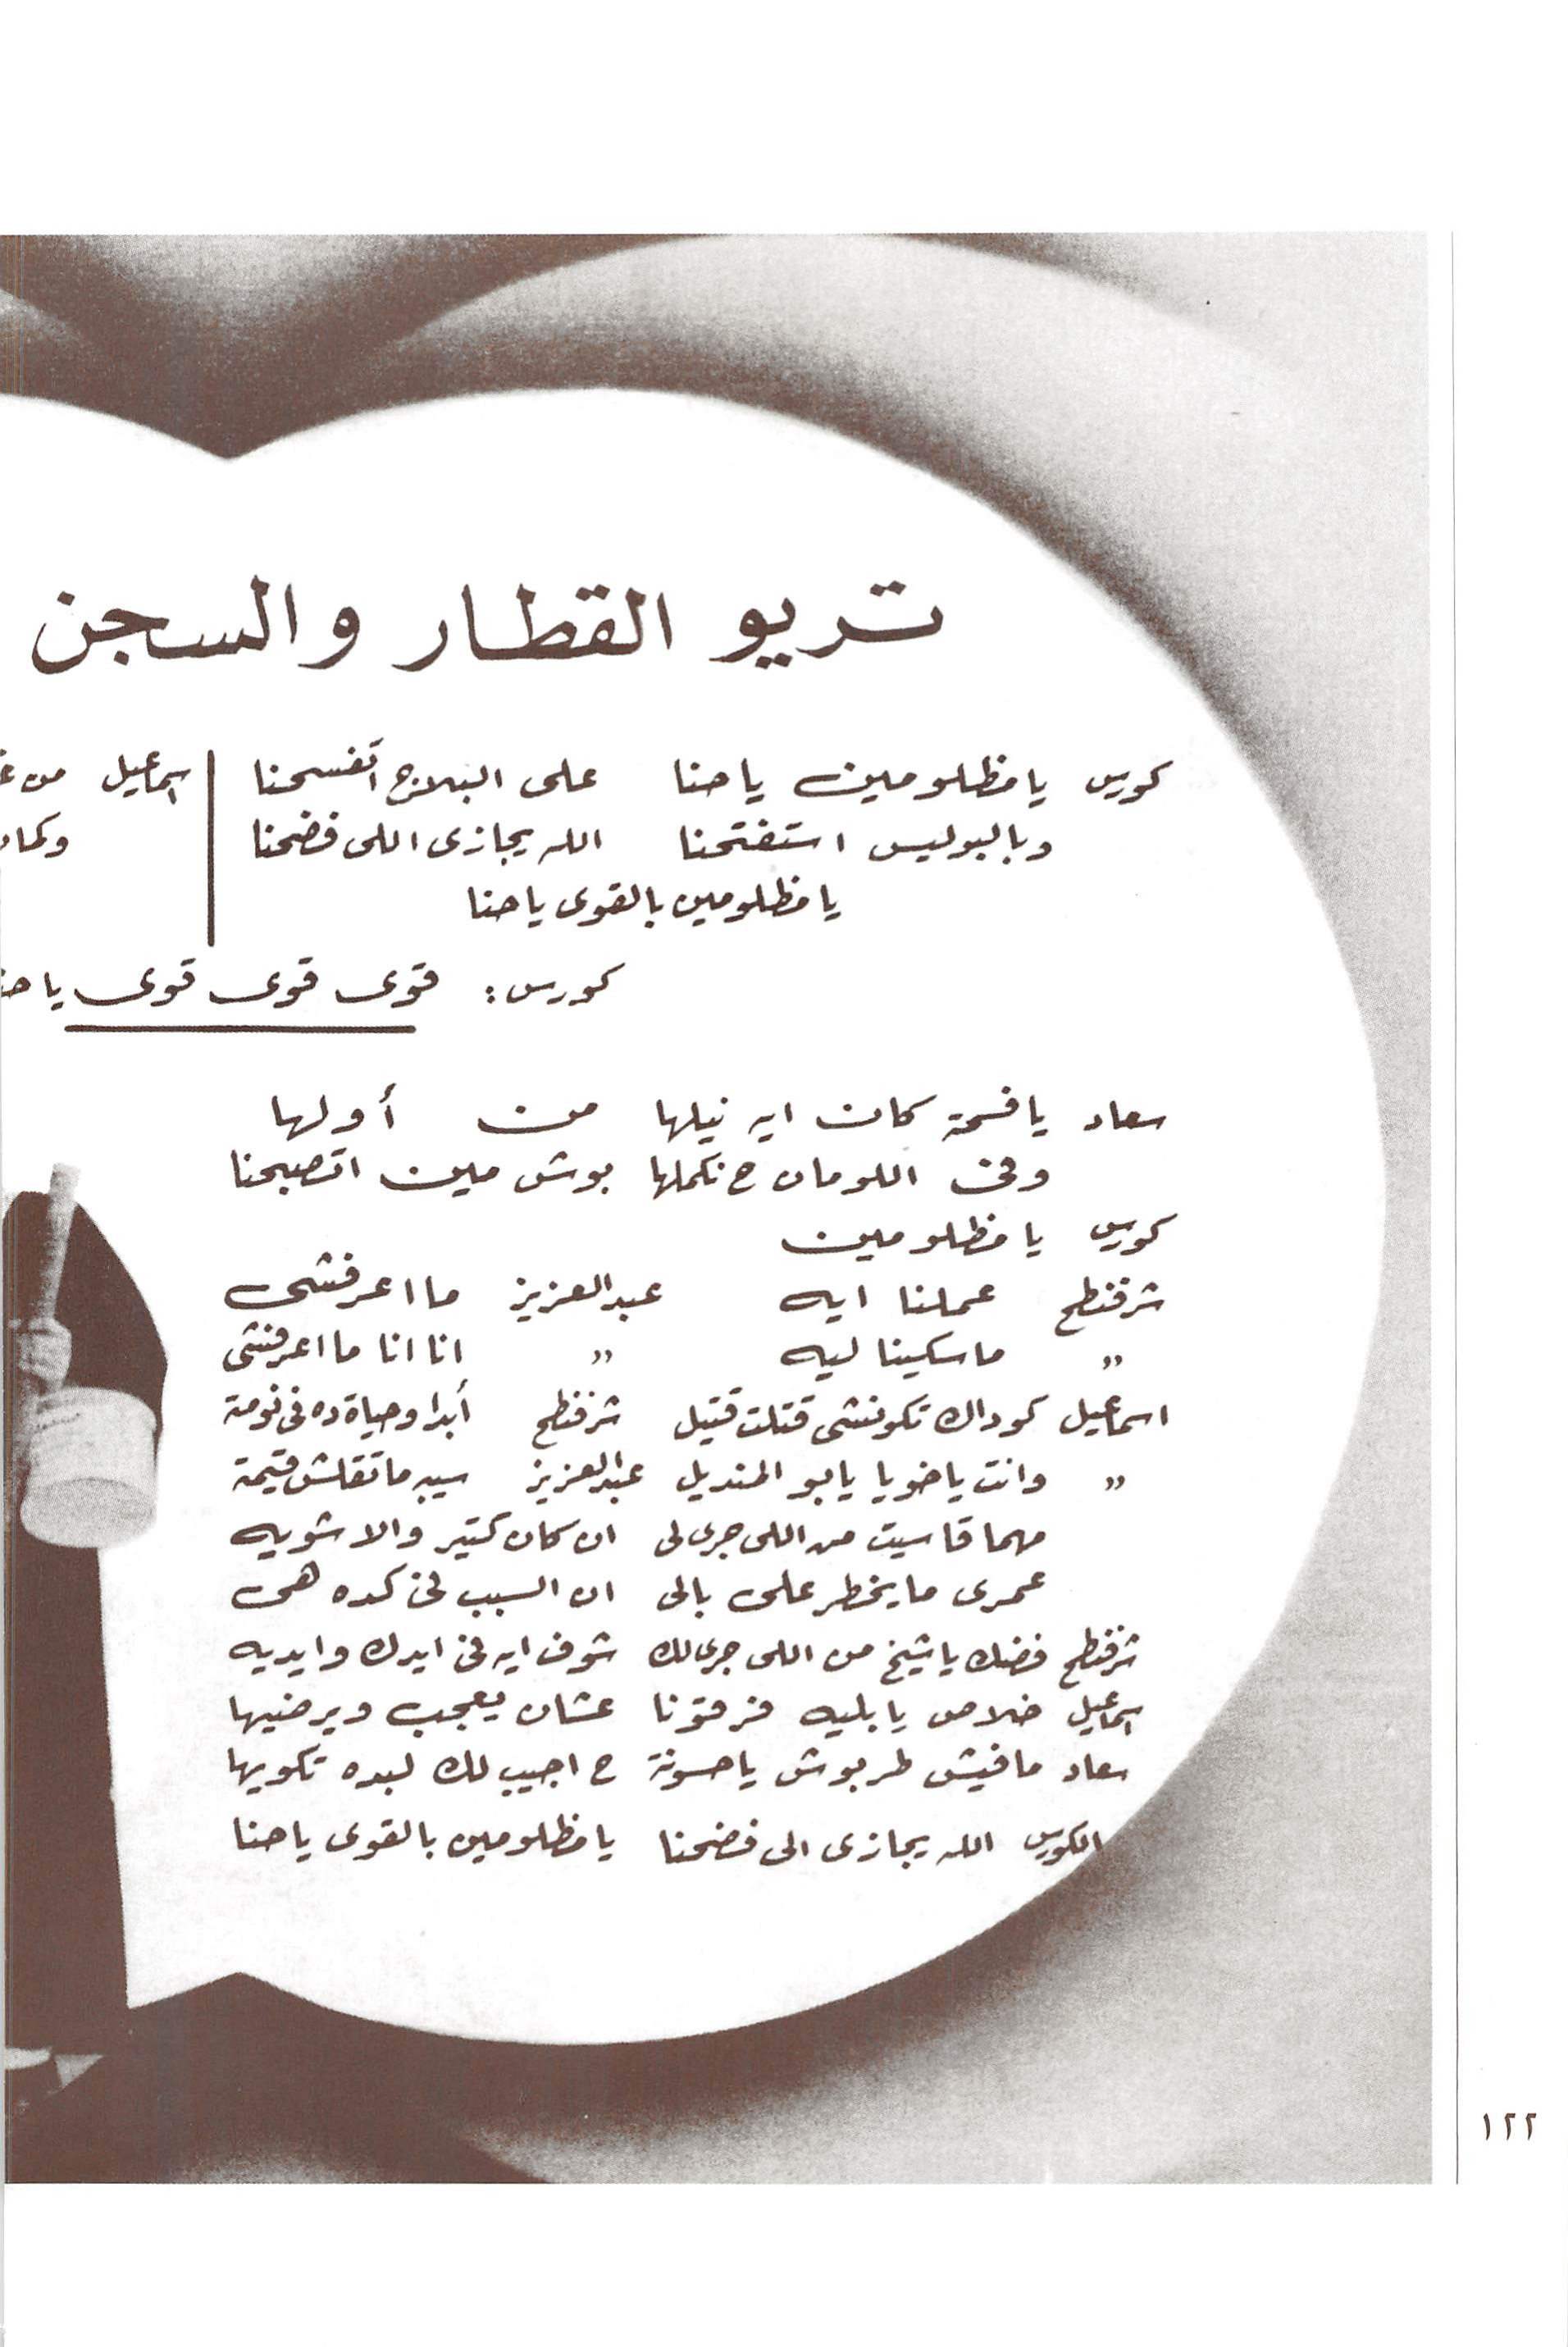 تريو القطار والسجن
كورس يا مظلومين يا حنا على البلاج اتفسحنا
وبالبوليس استفتحنا الله يجازى اللى فضحنا
يا مظلومين بالقوى يا حنا
اسماعيل من
وكمان
كورس: قوى قوى قوى يا حنا
سعاد يا فسحة كان ايه نيلها من أولها
وفى اللومان ح نكملها بوش مين اتصبحنا
كورس يا مظلومين
شرفنطح عملنا ايه عبد العزيز ما اعرفشى
" ماسكينا ليه " انا انا ما اعرفشى
اسماعيل كوداك تكونشى قتلت قتيل شرفنطح أبدا وحياة ده فى نومة
" وانت ياخويا يابو المنديل عبد العزيز سيبه ماتقلش قيمة
مهما قاسيت من اللى جرى لى ان كان كتير والا شويه
عمرى ما يخطر على بالى ان السبب فى كده هى
شرفنطح فضك يا شيخ من اللى جرى لك شوف ايه فى ايدك وايديه
اسماعيل خلاص يا بليه فرقتونا عشان يعجب ويرضيها
سعاد مافيش طربوش يا حسونة ح اجيب لك لبده تكويها
الكورس الله يجازى الى فضحنا يا مظلومين بالقوى يا حنا
١٢٢